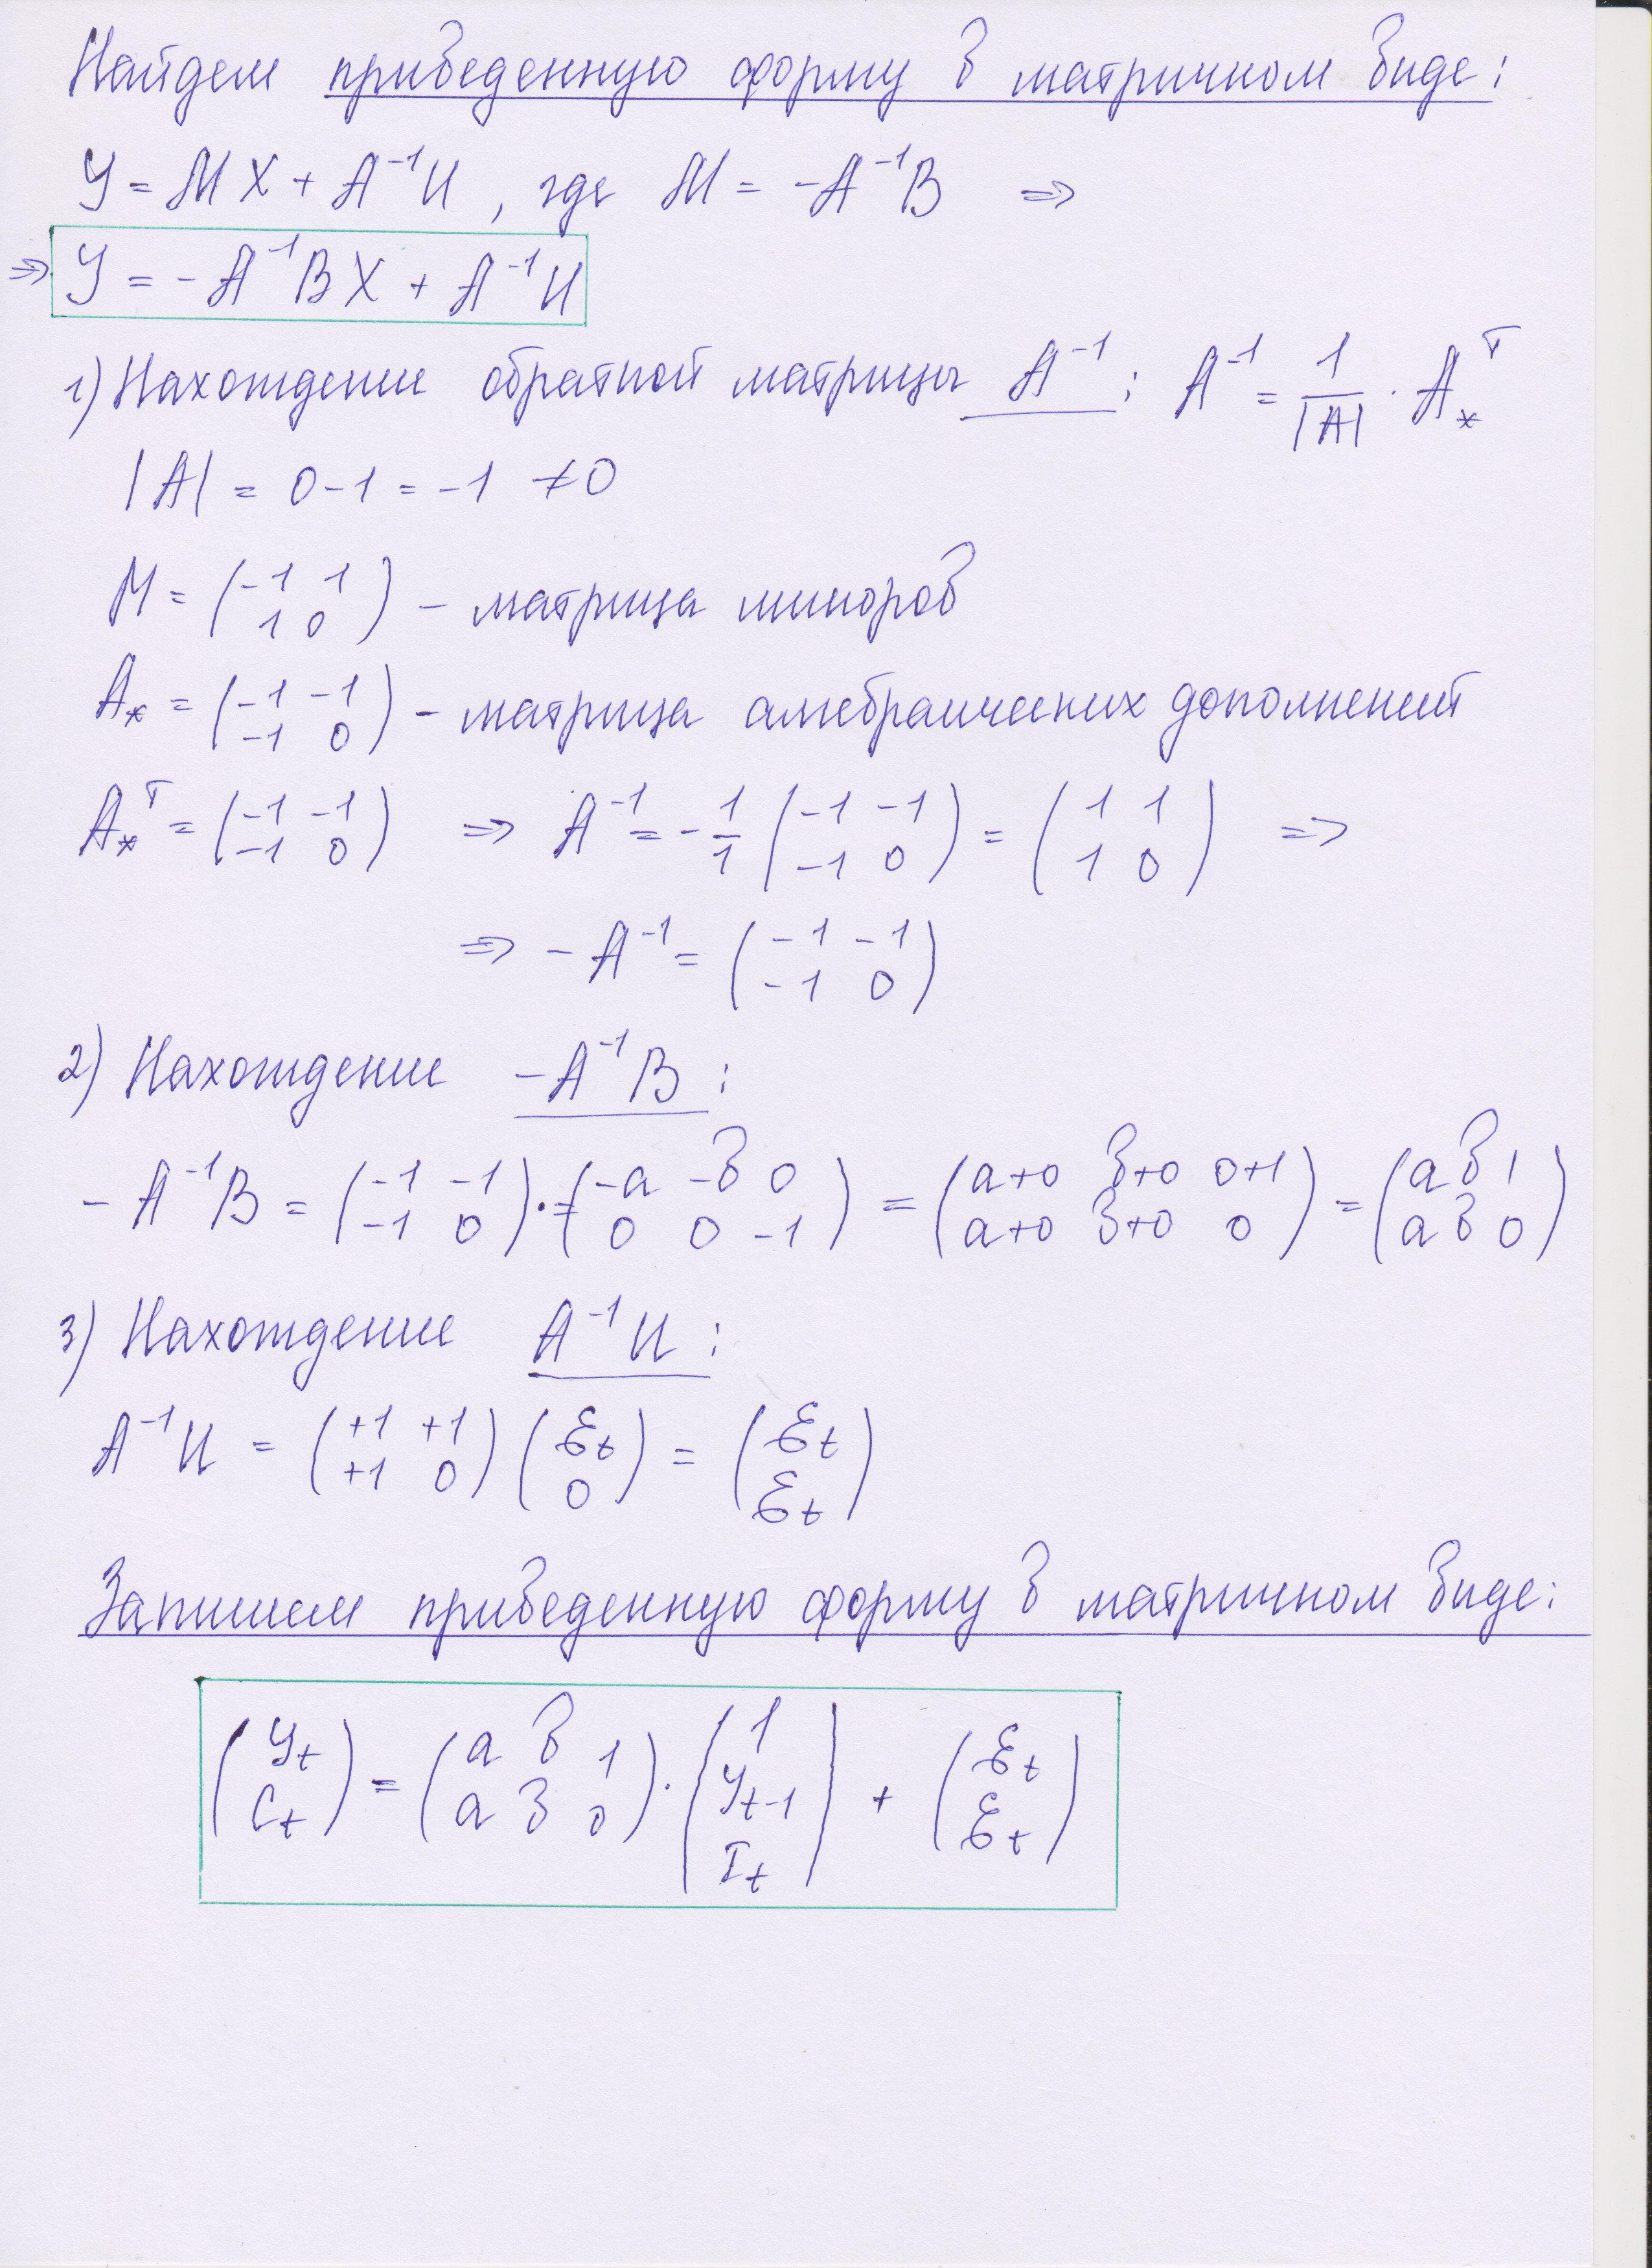 Найдем приведенную форму в матричном виде:
Y = M X + A⁻¹U, где M = -A⁻¹B ⇒
⇒ Y = -A⁻¹BX + A⁻¹U
1) Нахождение обратной матрицы A⁻¹: A⁻¹ = 1/|A| · A*ᵀ
|A| = 0-1 = -1 ≠0
M = (-1 1; 1 0) - матрица миноров
A* = (-1 -1; -1 0) - матрица алгебраических дополнений
A*ᵀ = (-1 -1; -1 0) ⇒ A⁻¹ = -1/1 (-1 -1; -1 0) = (1 1; 1 0) ⇒
⇒ -A⁻¹ = (-1 -1; -1 0)
2) Нахождение -A⁻¹B:
-A⁻¹B = (-1 -1; -1 0)·(-a -b 0; 0 0 -1) = (a+0 b+0 0+1; a+0 b+0 0) = (a b 1; a b 0)
3) Нахождение A⁻¹U:
A⁻¹U = (+1 +1; +1 0)(εt; 0) = (εt; εt)
Запишем приведенную форму в матричном виде:
(Yt; Ct) = (a b 1; a b 0)·(1; Yt-1; It) + (εt; εt)